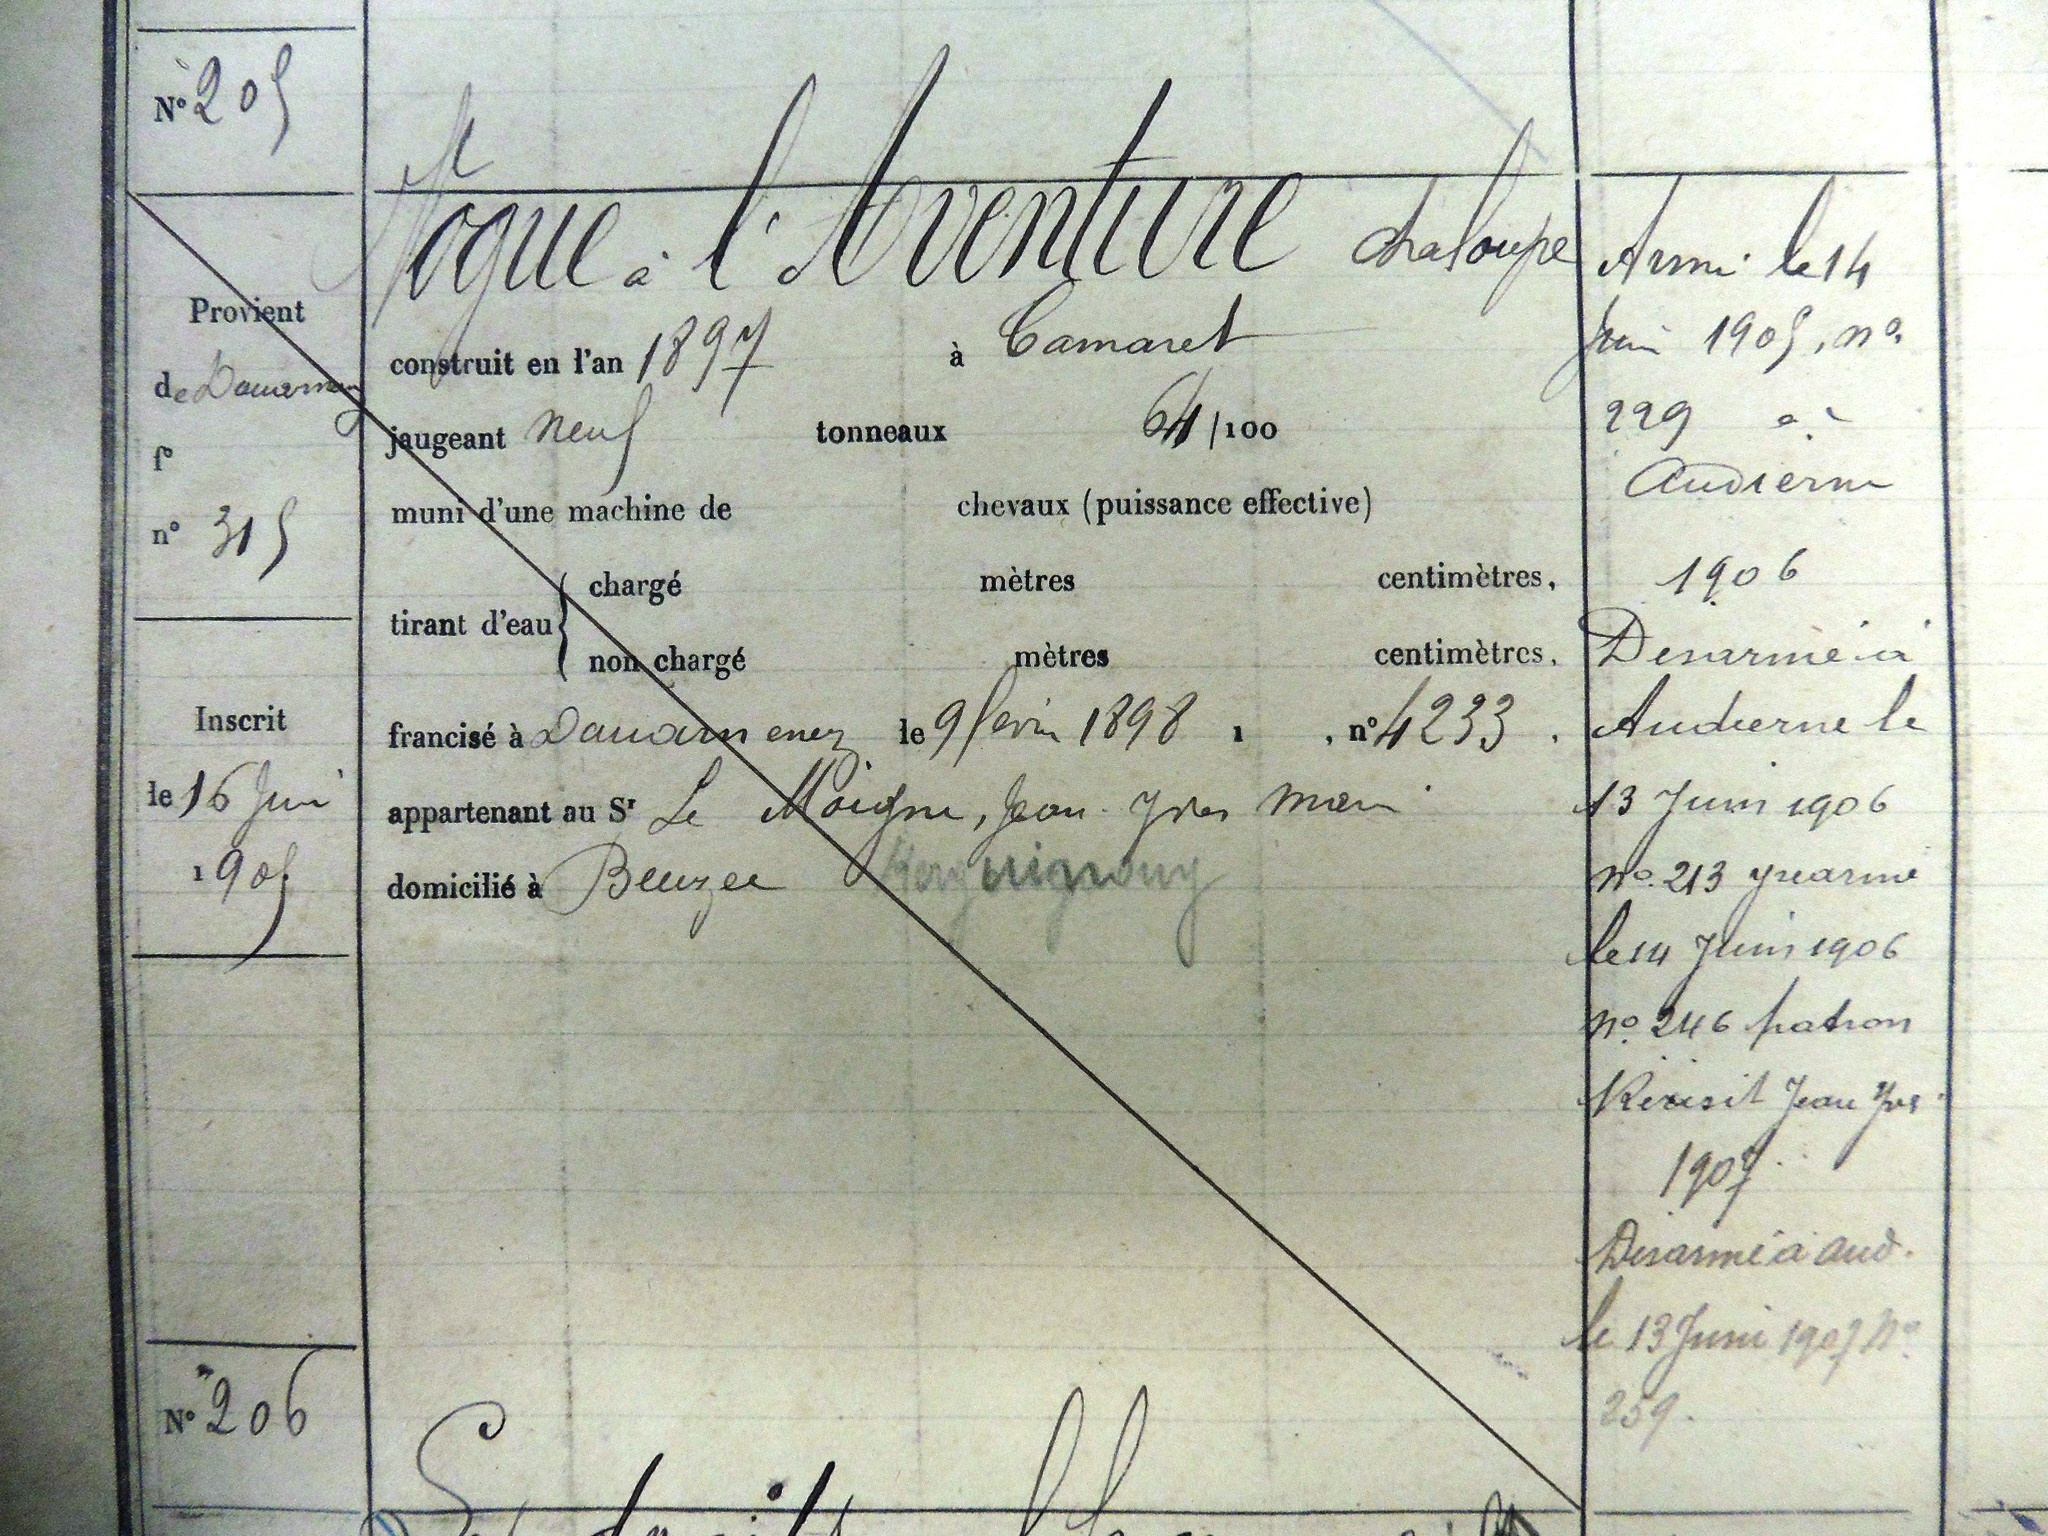 N° 205
Vogue à l'Aventure chaloupe
Provient
de Douarnenez
f°
n° 315
Inscrit
le 16 Juin
1905
construit en l'an 1897 à Camaret
jaugeant neuf tonneaux 64/100
muni d'une machine de chevaux (puissance effective)
tirant d'eau
chargé mètres centimètres,
non chargé mètres centimètres,
francisé à Douarnenez le 9 fevrier 1898, n° 4233,
appartenant au Sr Le Moigne, Jean Yves marin
domicilié à Beuzec
Armé le 14
Juin 1905, n°
229 à
Audierne
1906
Desarmé à
Audierne le
13 Juin 1906
n° 213 rearmé
le 14 Juin 1906
n° 246 patron
Jean Yves
1907
Desarmé à Aud.
le 13 Juin 1907 N°
259.
N° 206